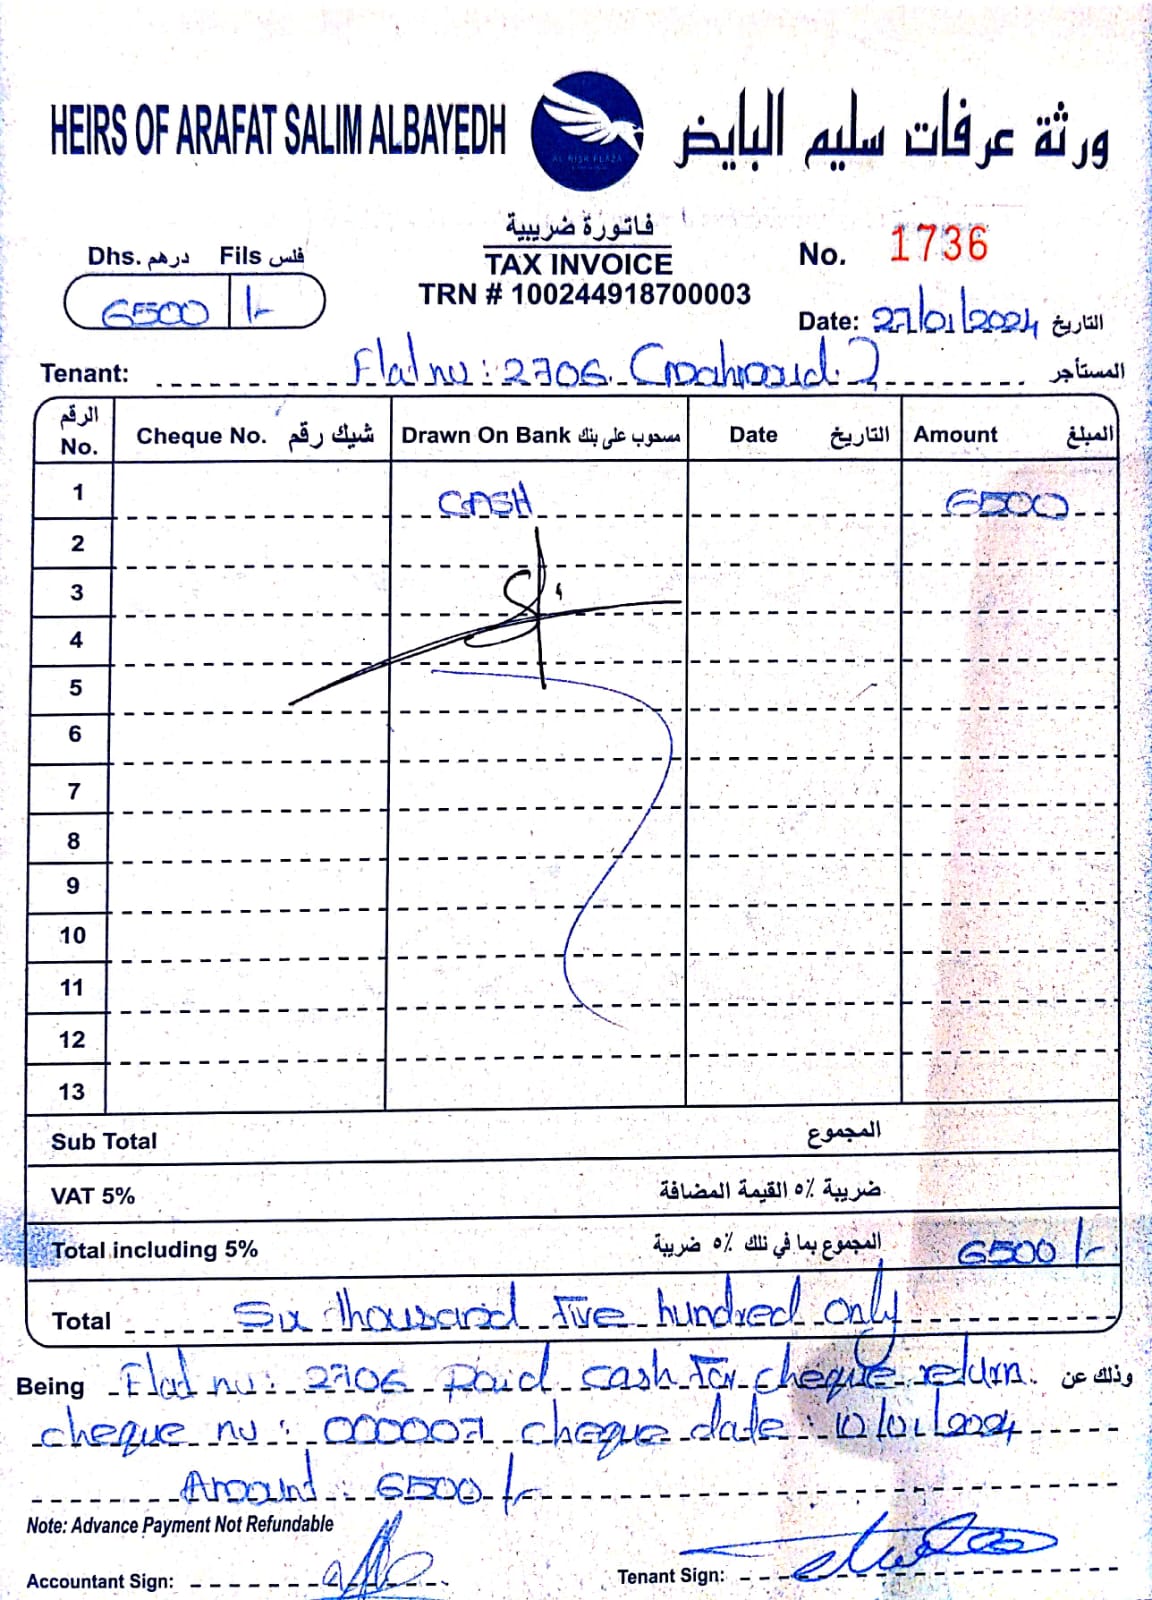 HEIRS OF ARAFAT SALIM ALBAYEDH
AL RISK PLAZA
ورثة عرفات سليم البايض
فاتورة ضريبية
TAX INVOICE
TRN # 100244918700003
Dhs. درهم Fils فلس
6500 /-
No. 1736
Date: 27/01/2024 التاريخ
Tenant: Flat no: 2706 المستأجر
الرقم No. Cheque No. شيك رقم Drawn On Bank مسحوب على بنك Date التاريخ Amount المبلغ
1 CASH 6500
2
3
4
5
6
7
8
9
10
11
12
13
Sub Total المجموع
VAT 5% ضريبة ٥٪ القيمة المضافة
Total including 5% المجموع بما في ذلك ٥٪ ضريبة 6500/-
Total Six thousand five hundred only
Being Flat no: 2706 paid cash for cheque return وذلك عن
cheque no: 000007 cheque date: 10/01/2024
Amount: 6500/-
Note: Advance Payment Not Refundable
Accountant Sign: Tenant Sign: